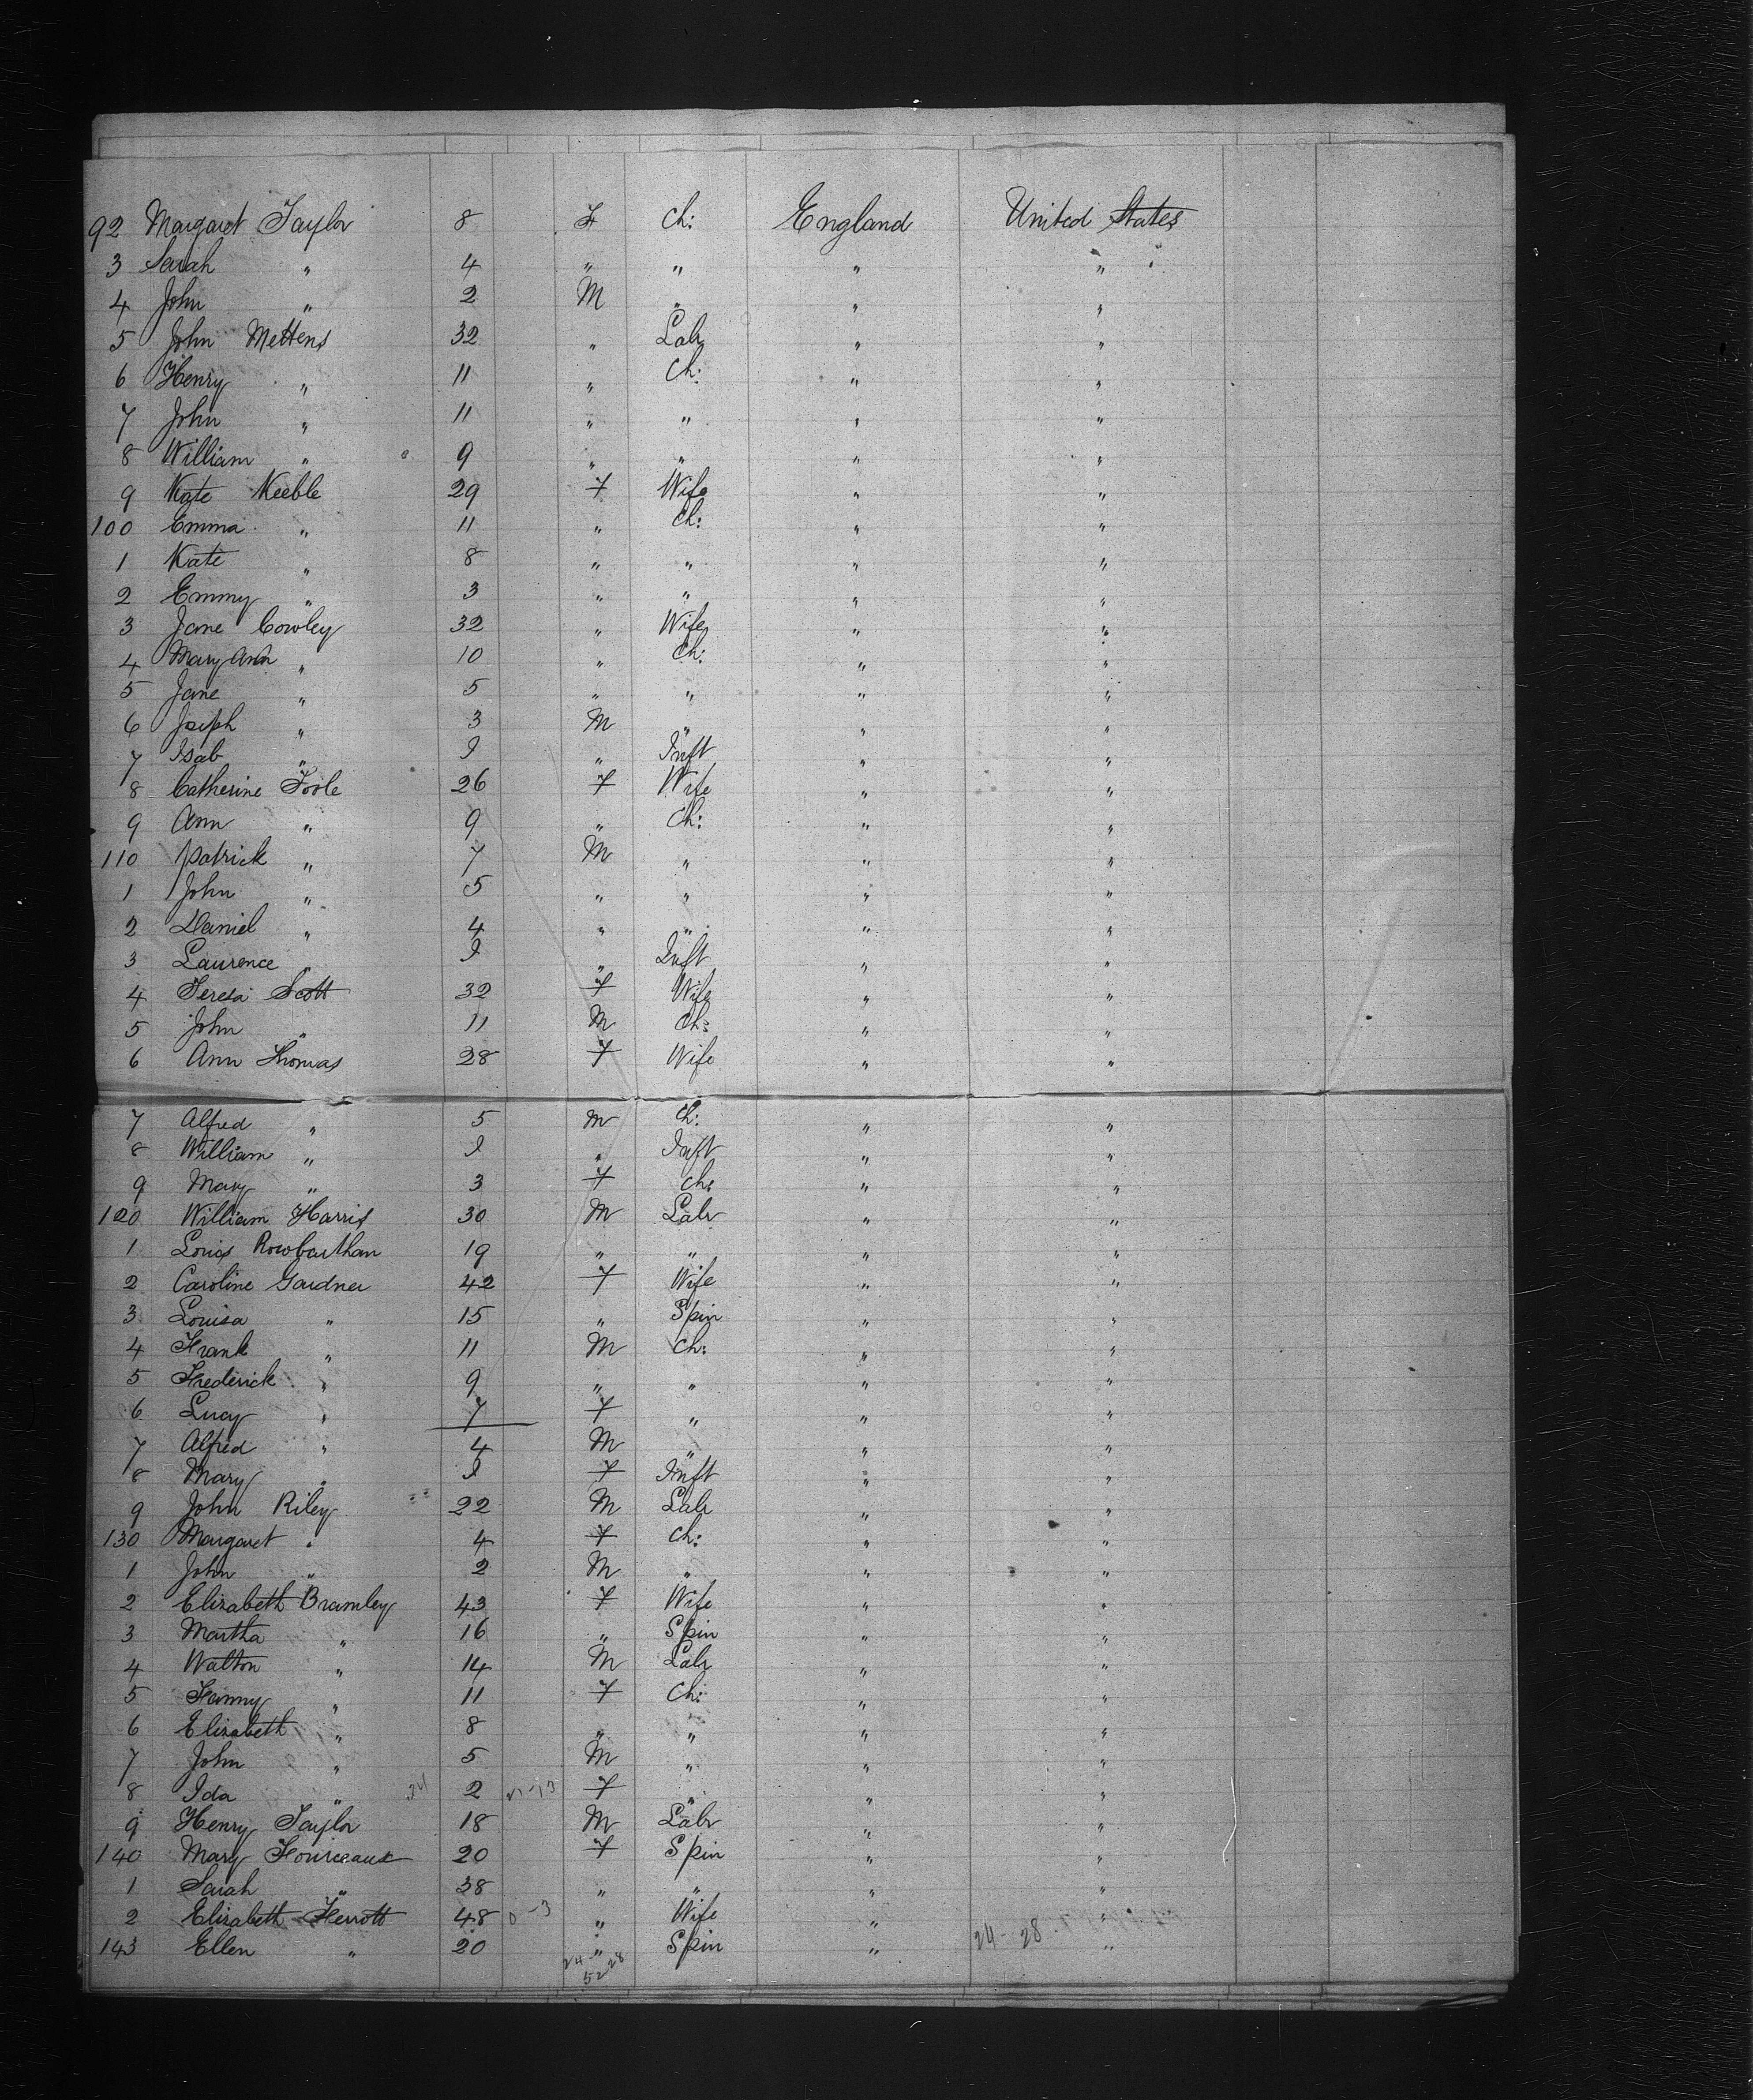 92 Margaret Taylor 8 F Ch: England United States
3 Sarah " 4 " " " "
4 John " 2 M " " "
5 John Mettens 32 " Labr " "
6 Henry " 11 " Ch: " "
7 John " 11 " " " "
8 William " 9 " " " "
9 Kate Keeble 29 F Wife " "
100 Emma " 11 " Ch: " "
1 Kate " 8 " " " "
2 Emmy " 3 " " " "
3 Jane Cowley 32 " Wife " "
4 Mary Ann " 10 " Ch: " "
5 Jane " 5 " " " "
6 Joseph " 3 M " " "
7 Isab " I " Inft " "
8 Catherine Toole 26 F Wife " "
9 Ann " 9 " Ch: " "
110 Patrick " 7 M " " "
1 John " 5 " " " "
2 Daniel " 4 " " " "
3 Laurence " I " Inft " "
4 Teresa Scott 32 F Wife " "
5 John " 11 M Ch: " "
6 Ann Thomas 28 F Wife " "
7 Alfred " 5 M Ch: " "
8 William " I " Inft " "
9 Mary " 3 F Ch: " "
120 William Harris 30 M Labr " "
1 Louis Rowbartham 19 " " " "
2 Caroline Gardner 42 F Wife " "
3 Louisa " 15 " Spin " "
4 Frank " 11 M Ch: " "
5 Frederick " 9 " " " "
6 Lucy " 7 F " " "
7 Alfred " 4 M " " "
8 Mary " I F Inft " "
9 John Riley 22 M Labr " "
130 Margaret " 4 F Ch: " "
1 John " 2 M " " "
2 Elizabeth Bramley 43 F Wife " "
3 Martha " 16 " Spin " "
4 Walton " 14 M Labr " "
5 Fanny " 11 F Ch: " "
6 Elizabeth " 8 " " " "
7 John " 5 M " " "
8 Ida " 2 F " " "
9 Henry Taylor 18 M Labr " "
140 Mary Fourceaux 20 F Spin " "
1 Sarah " 38 " " " "
2 Elizabeth Herrott 48 " Wife " "
143 Ellen " 20 " Spin " "
24-28